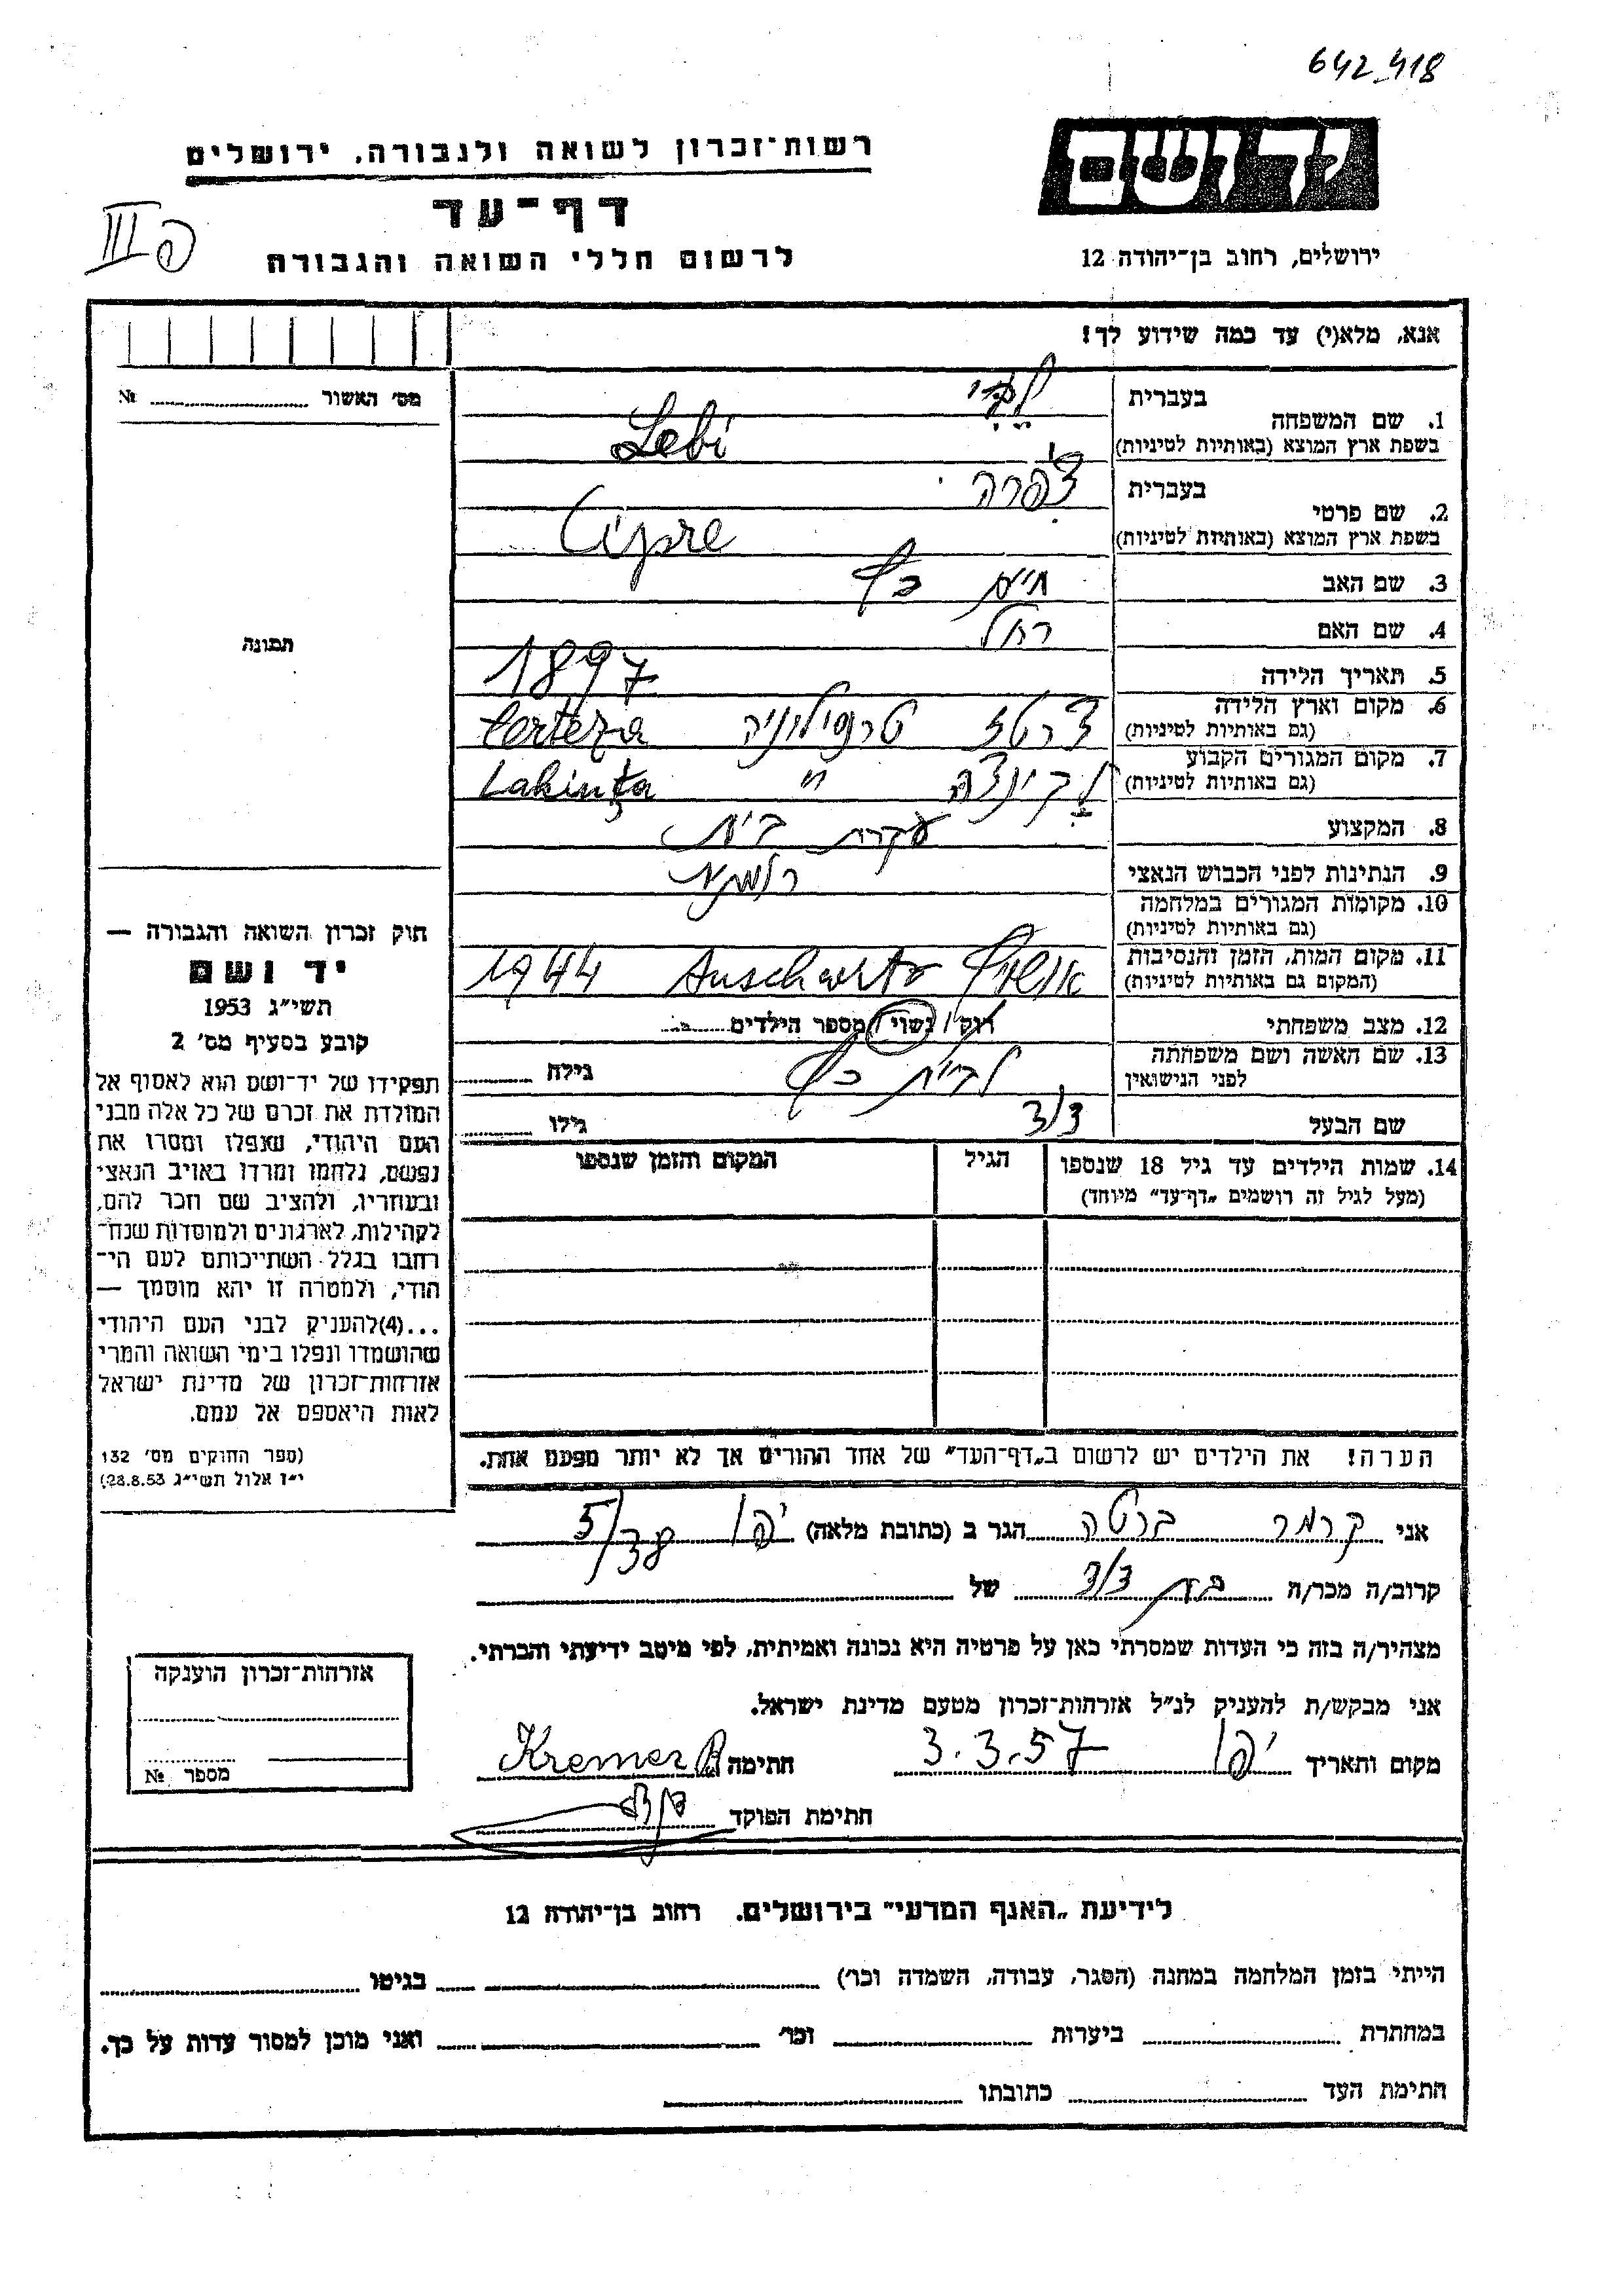 642_418
יד ושם
ירושלים, רחוב בן־יהודה 12
רשות־זכרון לשואה ולגבורה, ירושלים
דף־עד
לרשום חללי השואה והגבורה
III פ
אנא, מלא(י) עד כמה שידוע לך!
מס׳ האשור № 
תמונה
1. שם המשפחה בעברית לבי
בשפת ארץ המוצא (באותיות לטיניות) Lebi
2. שם פרטי בעברית צפרה
בשפת ארץ המוצא (באותיות לטיניות) Cipre
3. שם האב חיים כץ
4. שם האם רחל
5. תאריך הלידה 1897
6. מקום וארץ הלידה (גם באותיות לטיניות) Certeza
7. מקום המגורים הקבוע (גם באותיות לטיניות) לקינצה " Lakința
8. המקצוע עקרת בית
9. הנתינות לפני הכבוש הנאצי
10. מקומות המגורים במלחמה (גם באותיות לטיניות)
11. מקום המות, הזמן והנסיבות (המקום גם באותיות לטיניות) אושויץ Auschwitz 1944
12. מצב משפחתי רוק / נשוי / מספר הילדים
13. שם האשה ושם משפחתה לפני הנישואין לבית כץ גילה
שם הבעל דוד גילו
14. שמות הילדים עד גיל 18 שנספו (מעל לגיל זה רושמים „דף־עד״ מיוחד) הגיל המקום והזמן שנספו
הערה! את הילדים יש לרשום ב„דף־העד״ של אחד ההורים אך לא יותר מפעם אחת.
חוק זכרון השואה והגבורה —
יד ושם
תשי״ג 1953
קובע בסעיף מס׳ 2
תפקידו של יד־ושם הוא לאסוף אל
המולדת את זכרם של כל אלה מבני
העם היהודי, שנפלו ומסרו את
נפשם, נלחמו ומרדו באויב הנאצי
ובעוזריו, ולהציב שם וזכר להם,
לקהילות, לארגונים ולמוסדות שנח־
רבו בגלל השתייכותם לעם הי־
הודי, ולמטרה זו יהא מוסמך —
...(4)להעניק לבני העם היהודי
שהושמדו ונפלו בימי השואה והמרי
אזרחות־זכרון של מדינת ישראל
לאות היאספם אל עמם.
(ספר החוקים מס׳ 132
י״ז אלול תשי״ג 28.8.53)
אני קרמר ברטה הגר ב (כתובת מלאה) יפו 5/38
קרוב/ה מכר/ה של
מצהיר/ה בזה כי העדות שמסרתי כאן על פרטיה היא נכונה ואמיתית, לפי מיטב ידיעתי והכרתי.
אני מבקש/ת להעניק לנ״ל אזרחות־זכרון מטעם מדינת ישראל.
מקום ותאריך יפו 3.3.57 חתימה Kremer B
חתימת הפוקד
אזרחות־זכרון הוענקה
מספר №
לידיעת „האגף המדעי״ בירושלים. רחוב בן־יהודה 12
הייתי בזמן המלחמה במחנה (הסגר, עבודה, השמדה וכו׳) בגיטו
במחתרת ביערות וכו׳ ואני מוכן למסור עדות על כך.
חתימת העד כתובתו